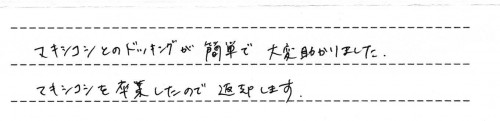 マキシコシとのドッキングが簡単で大変助かりました.
マキシコシを卒業したので返却します.